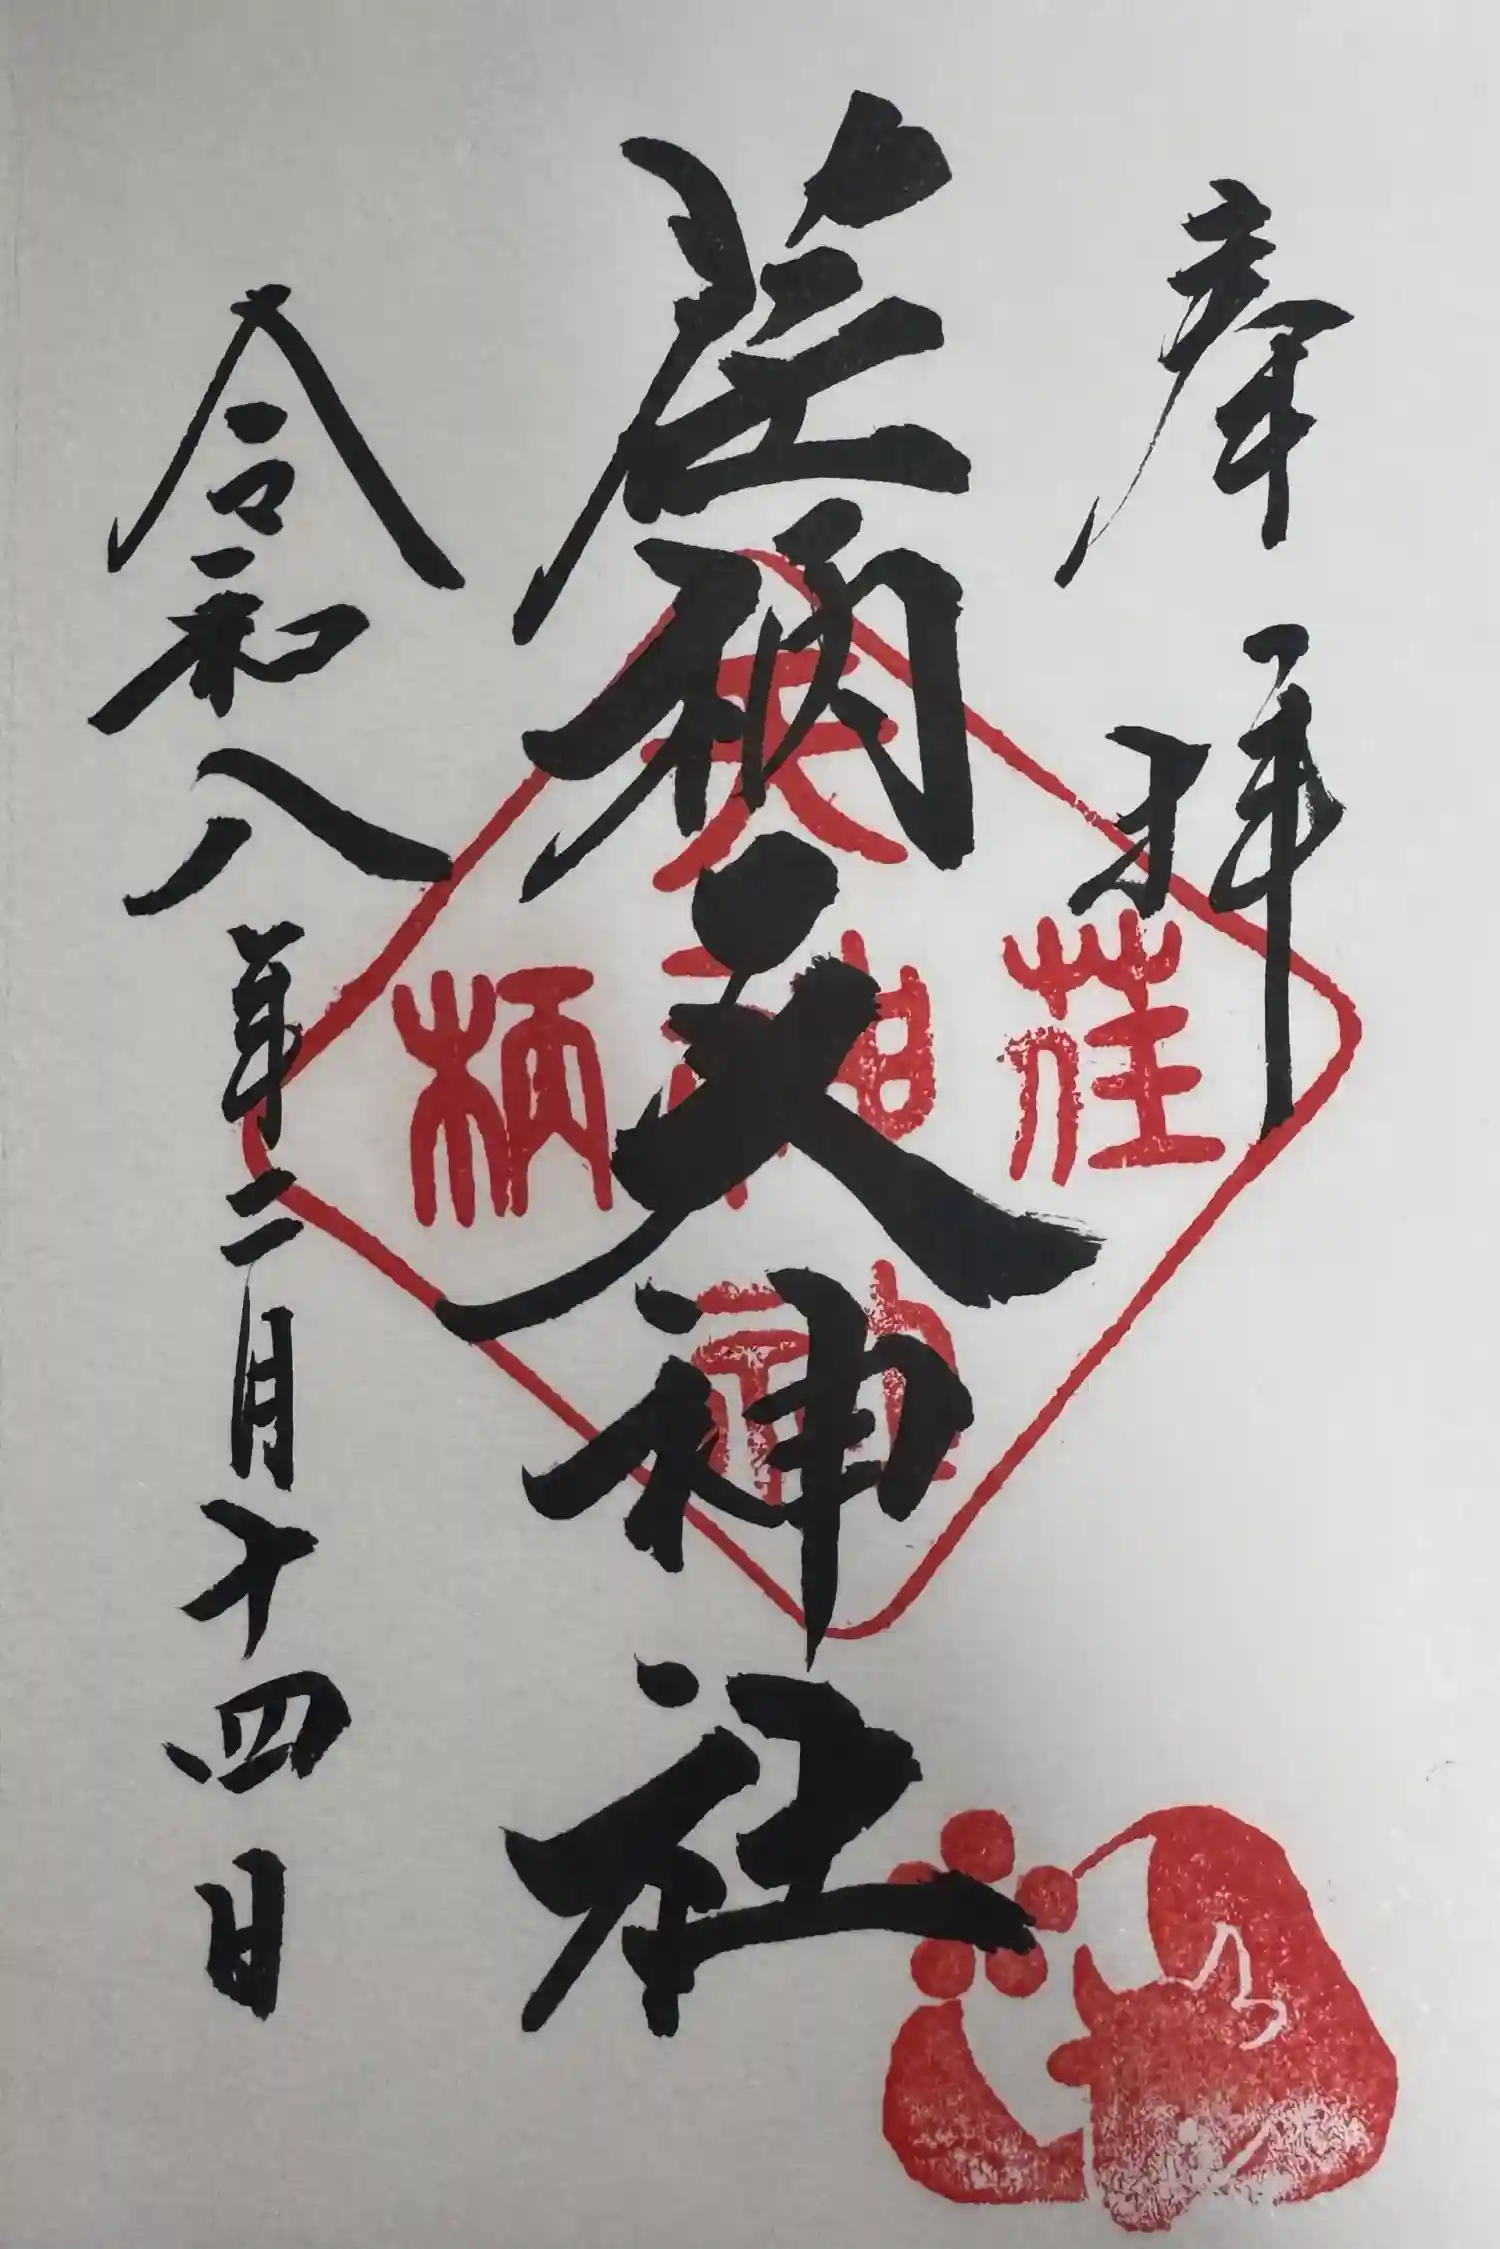 奉拝
荏柄天神社
令和八年二月十四日
荏柄
天神